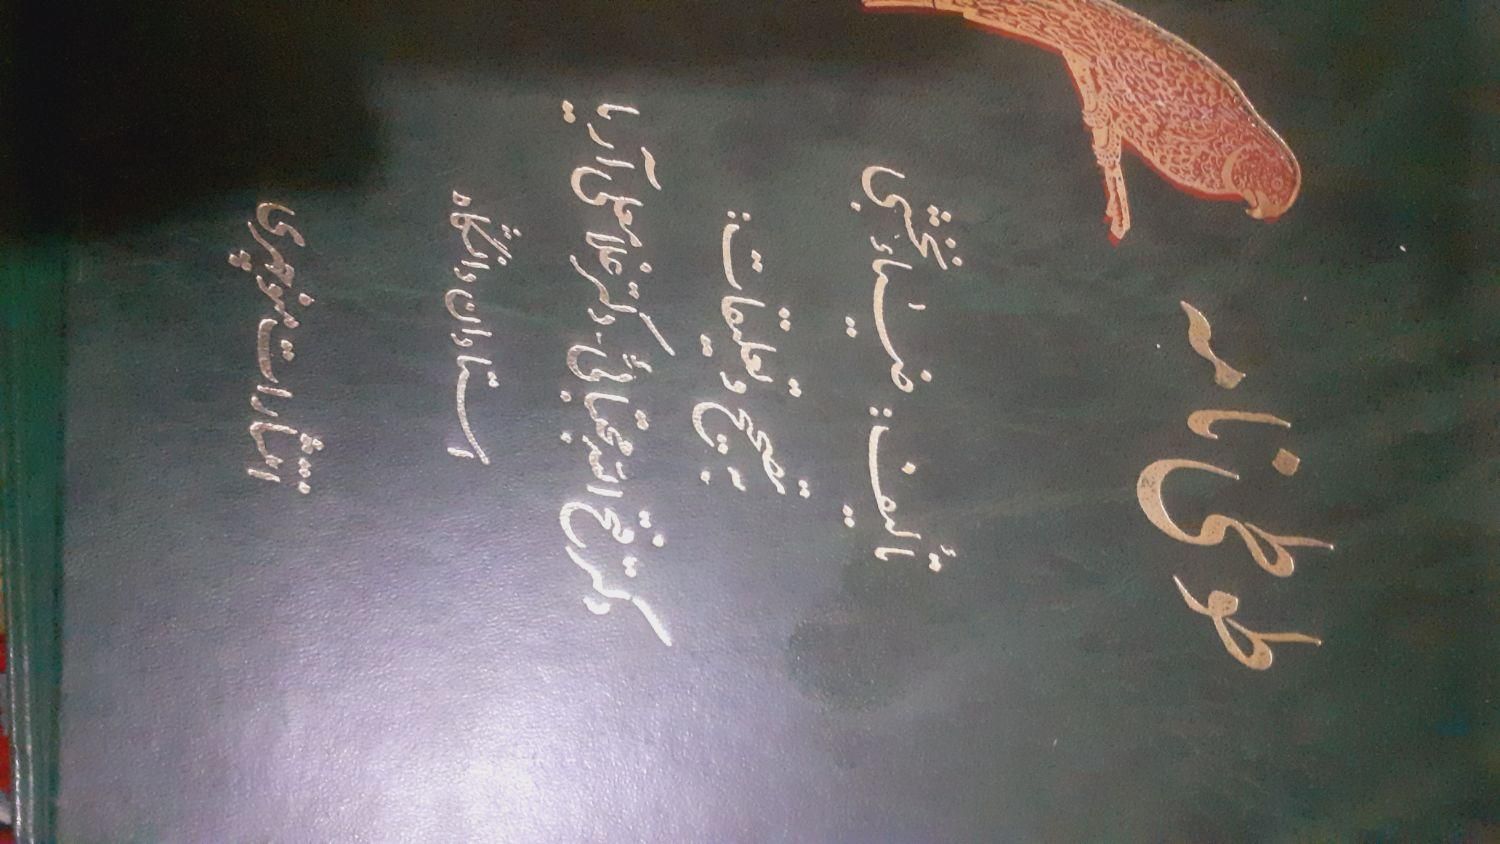 طوطی نامه
تألیف: ضیاء نخشبی
تصحیح و تعلیقات:
دکتر فتح الله مجتبائی - دکتر غلامعلی آریا
استادان دانشگاه
انتشارات منوچهری